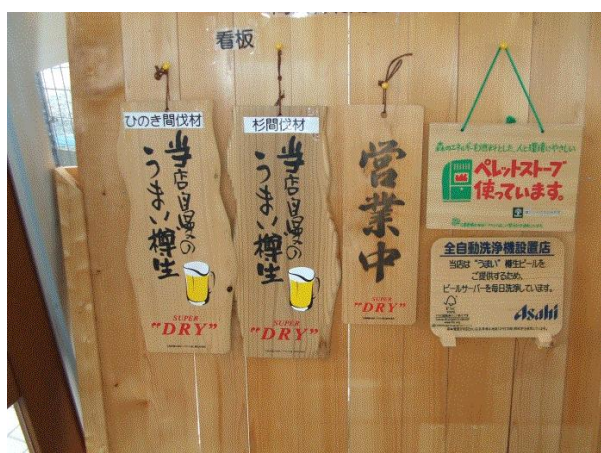 看板
ひのき間伐材
当店自慢の
うまい樽生
SUPER
"DRY"
杉間伐材
当店自慢の
うまい樽生
SUPER
"DRY"
営業中
SUPER
"DRY"
森のエネルギーを燃料とした、人と環境にやさしい
ペレットストーブ
使っています。
全自動洗浄機設置店
当店は"うまい"樽生ビールを
ご提供するため、
ビールサーバーを毎日洗浄しています。
FSC
Asahi